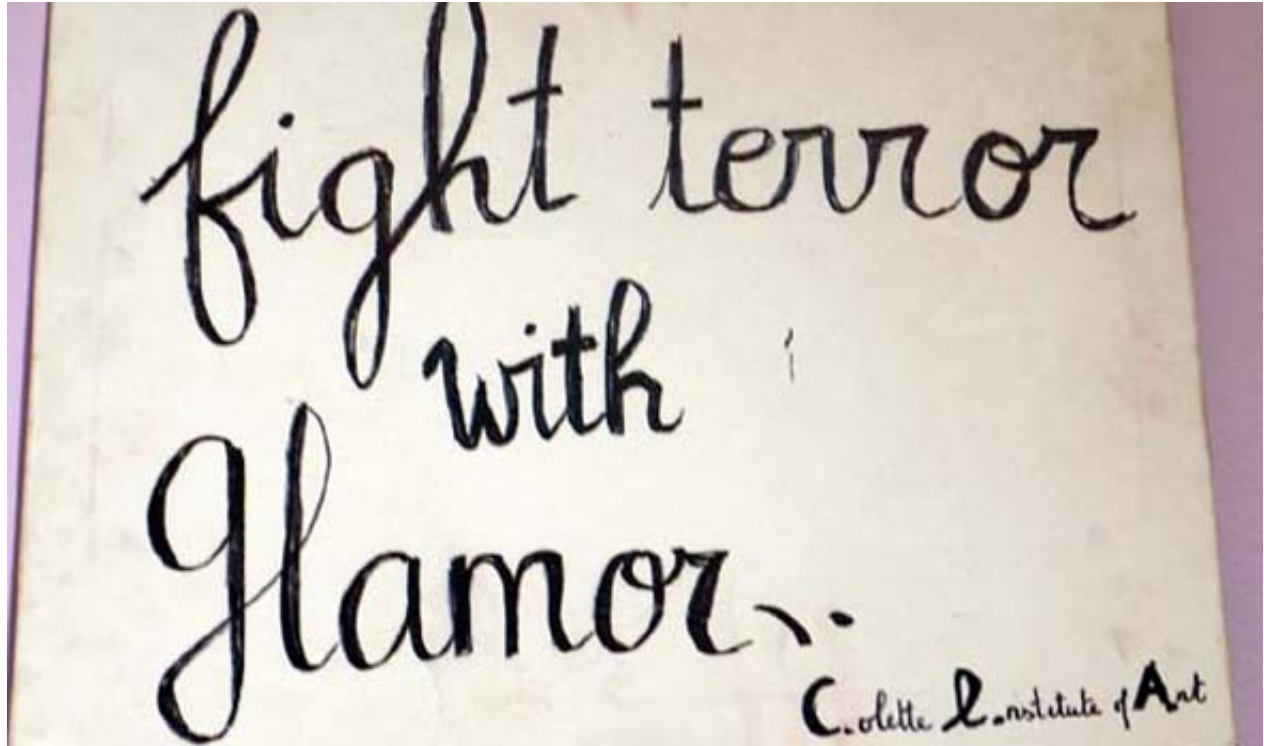 fight terror
with
Glamor..
C.olette I.nstitute of A.rt